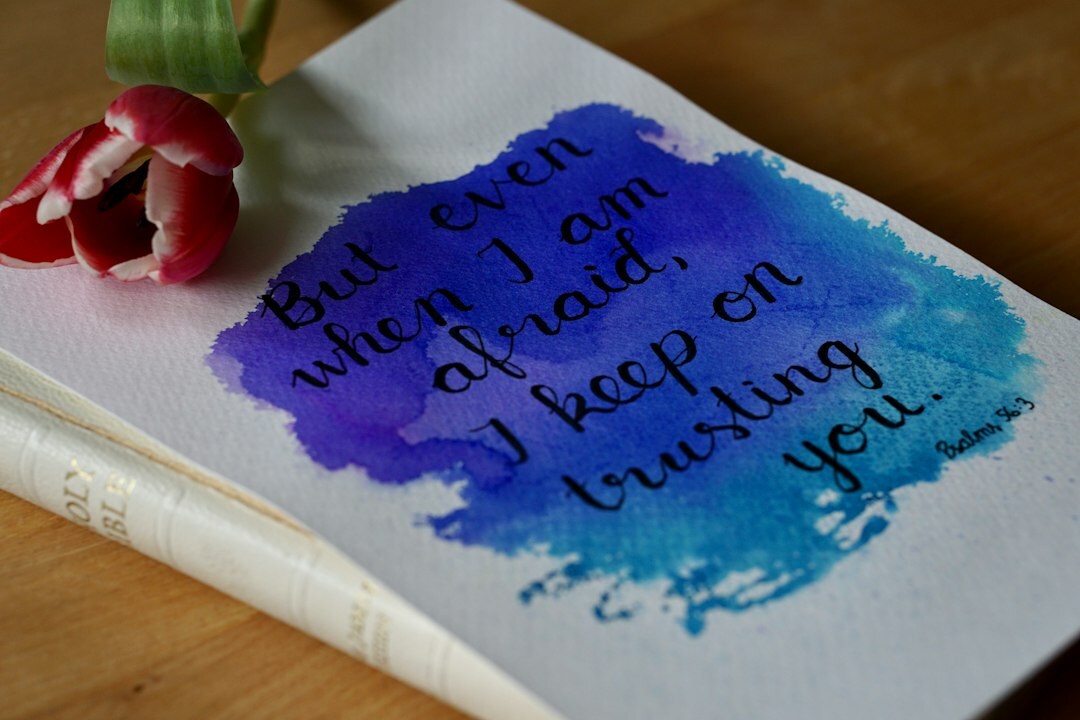 But even
when I am
afraid,
I keep on
trusting
you.
Psalms 56:3
OLY
IBLE